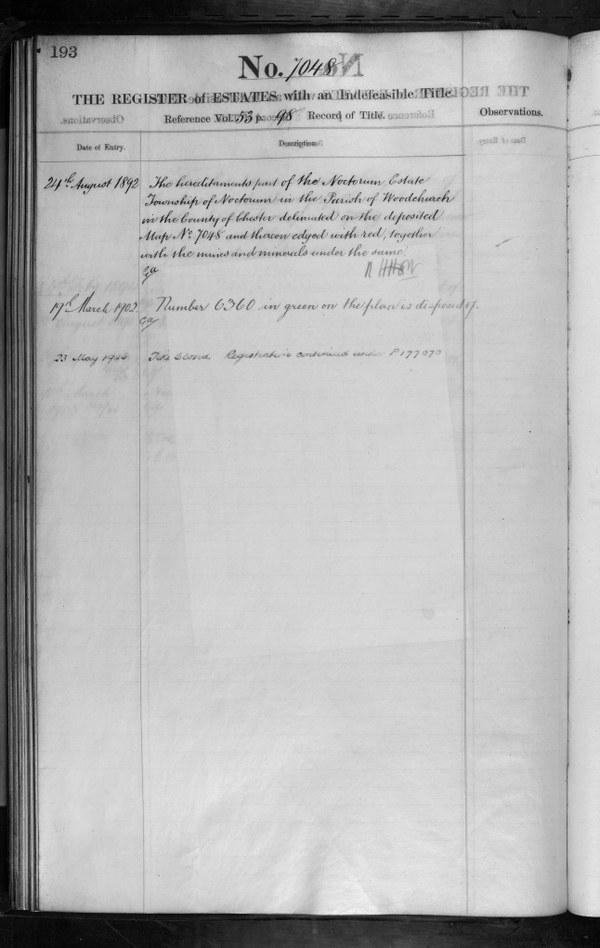 193
No. 7048
THE REGISTER of ESTATES with an Indefeasible Title.
Reference Vol. 53 p. 98 Record of Title.
Observations.
Date of Entry.
Description.
24th August 1892
The hereditaments part of the Noctorum Estate
Township of Noctorum in the Parish of Woodchurch
in the County of Chester delineated on the deposited
Map No. 7048 and thereon edged with red, together
with the mines and minerals under the same.
19th March 1902.
Number 6360 in green on the plan is disposed of.
23 May 1944
Title closed. Registration continued under P177070